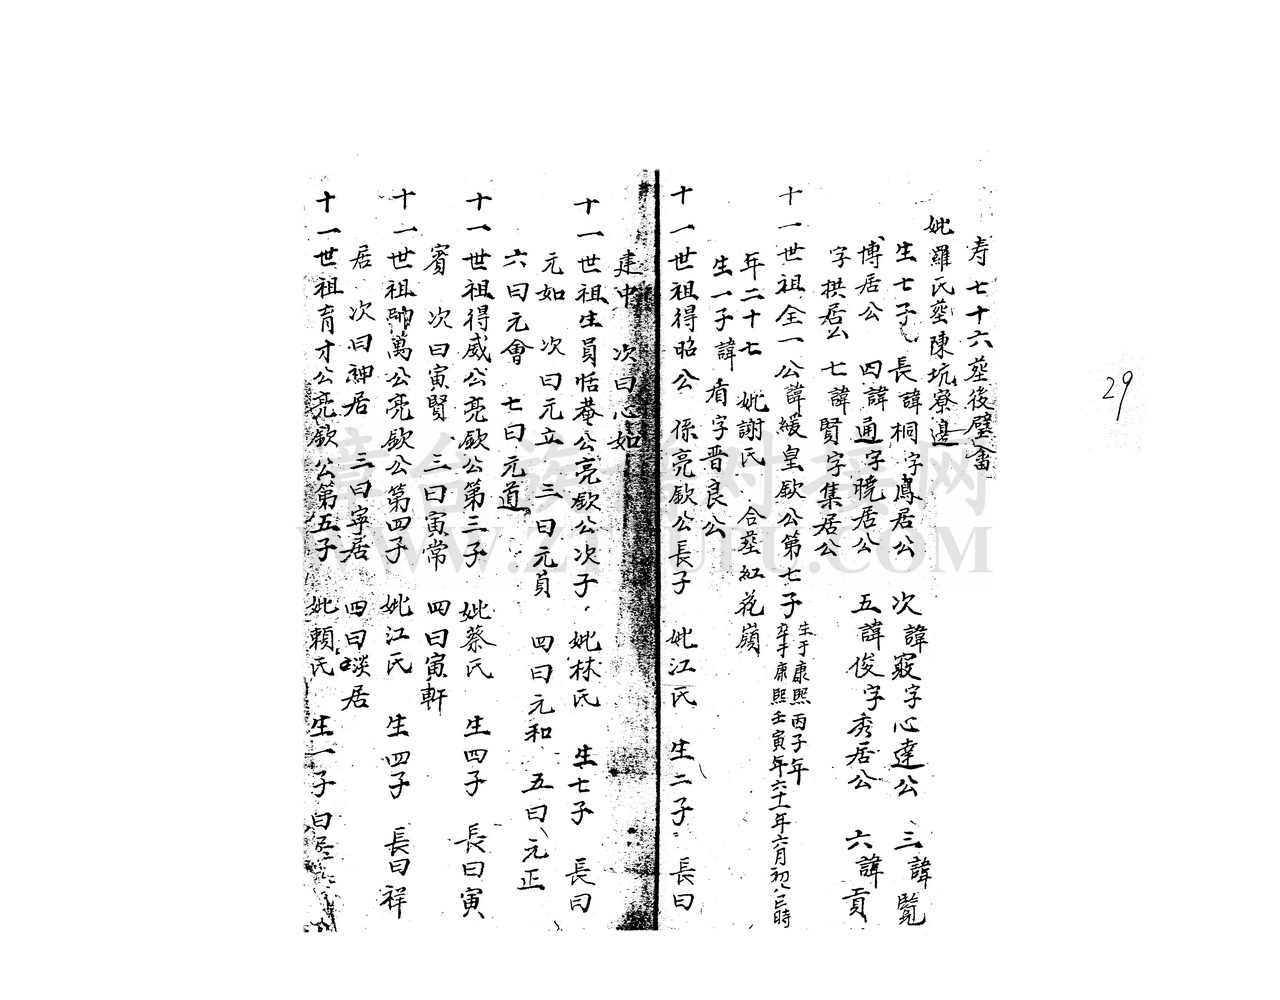 寿七十六塟後壁畬
妣羅氏塟陳坑寮邊
生七子 長諱桐字鳳居公 次諱寂字心達公 三諱覽
博居公 四諱通字曉居公 五諱俊字秀居公 六諱貢
字拱居公 七諱賢字集居公
十一世祖全一公諱緩皇欽公第七子 生于康熙丙子年
卒于康熙壬寅年六十一年六月初八巳時
年二十七 妣謝氏 合塟紅花嶺
生一子諱 字晋良公
十一世祖得昭公 係亮欽公長子 妣江氏 生二子 長曰
建中 次曰心如
十一世祖生員恬菴公亮欽公次子 妣林氏 生七子 長曰
元如 次曰元立 三曰元員 四曰元和 五曰元正
六曰元會 七曰元道
十一世祖得威公亮欽公第三子 妣蔡氏 生四子 長曰寅
賓 次曰寅賢 三曰寅常 四曰寅軒
十一世祖 萬公亮欽公第四子 妣江氏 生四子 長曰祥
居 次曰神居 三曰寧居 四曰淡居
十一世祖育才公亮欽公第五子 妣賴氏 生一子曰
29
章台族谱对接网
WWW.ZTZUPU.COM